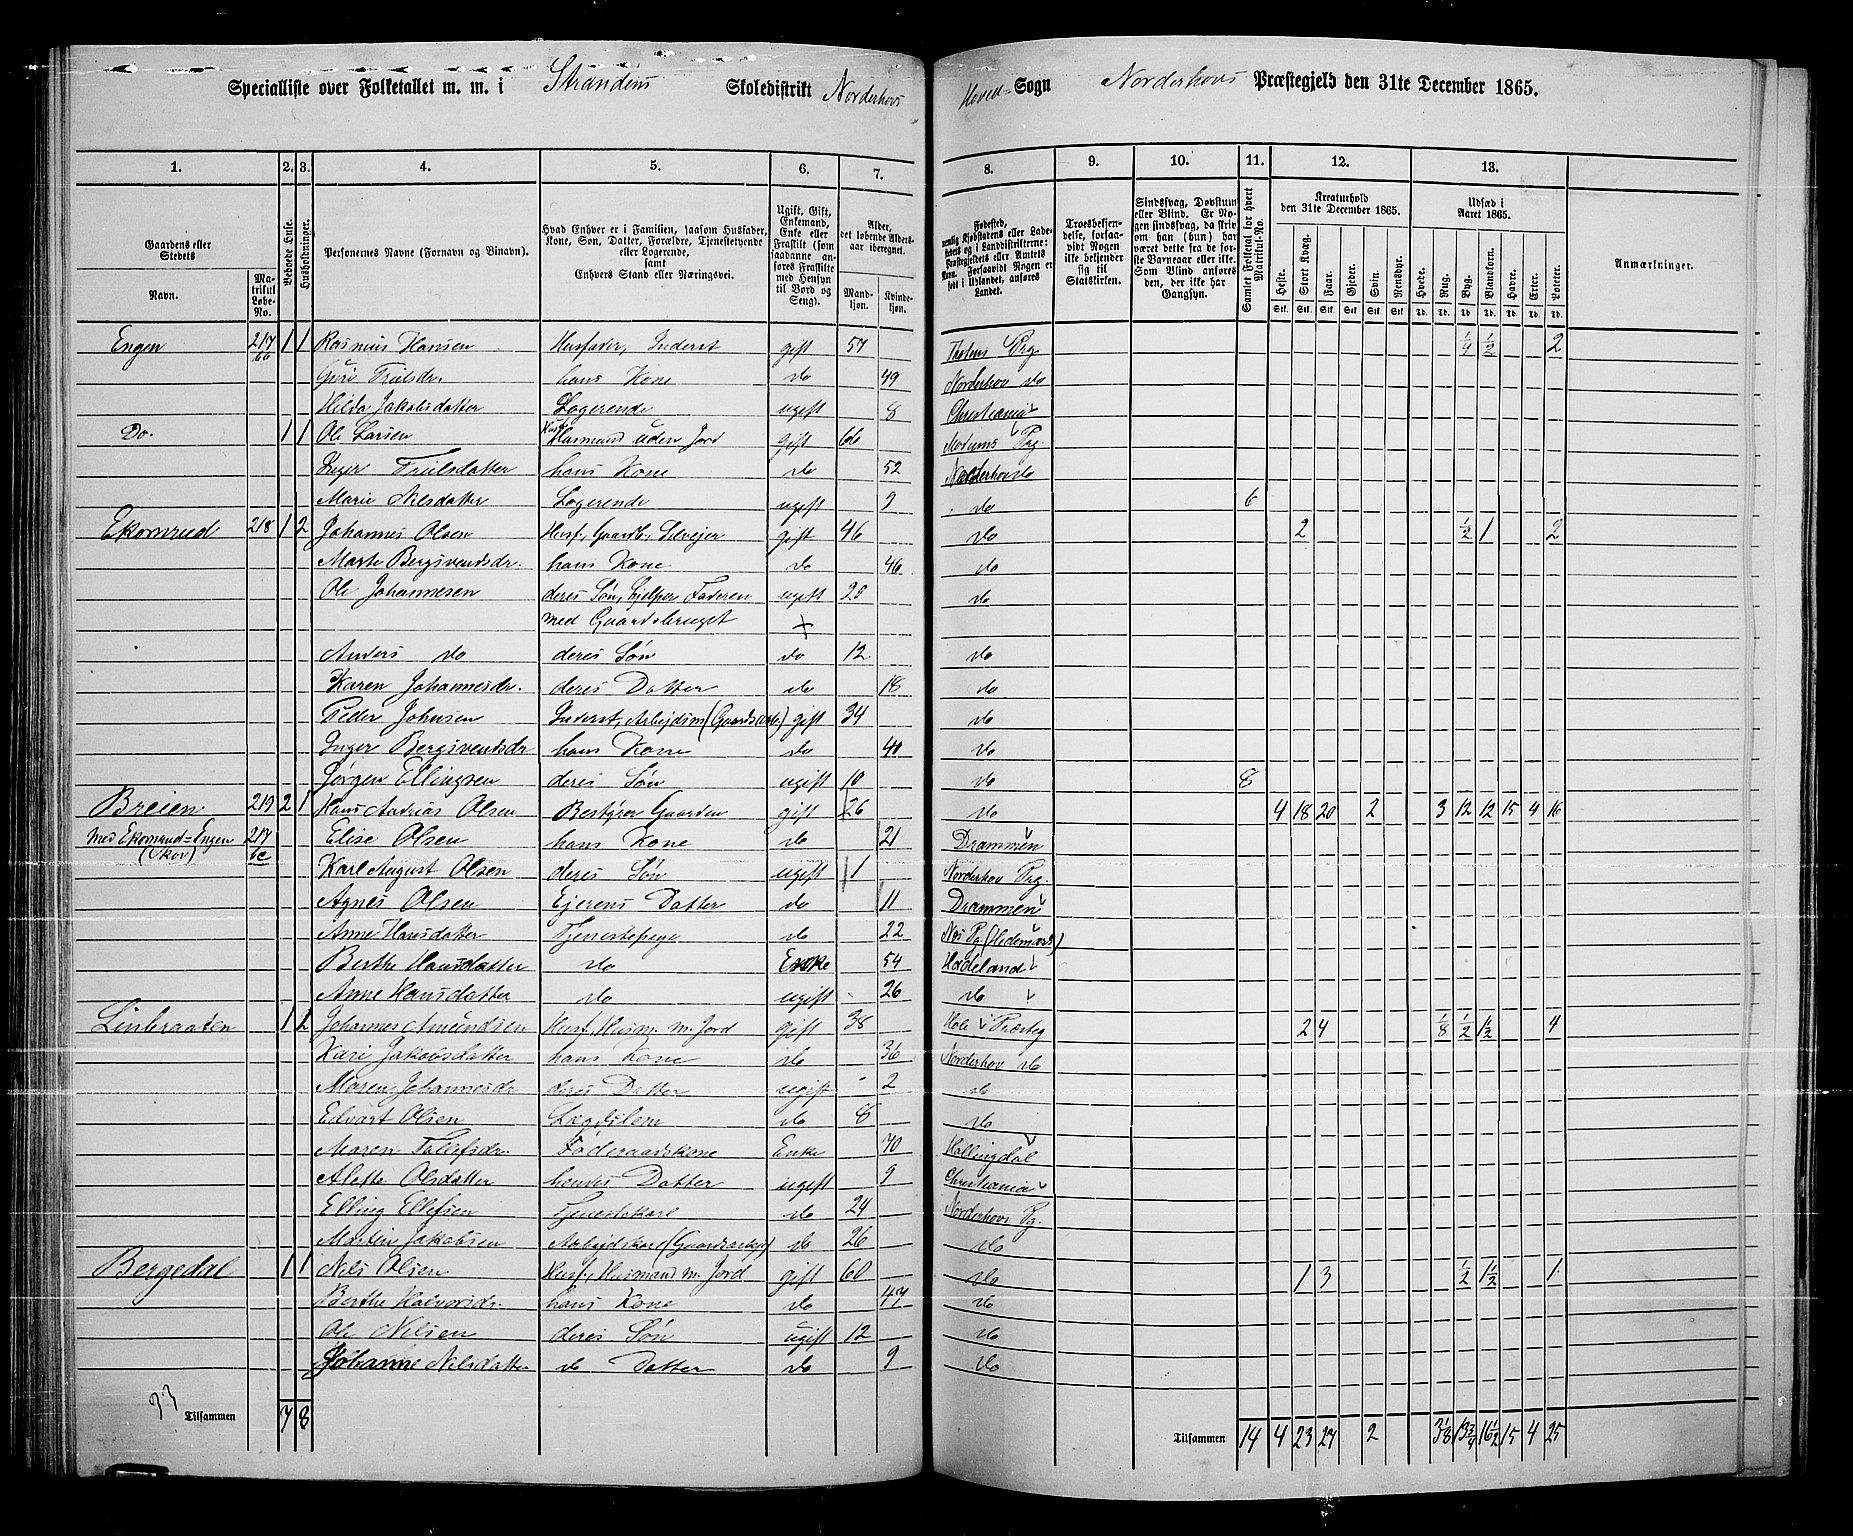 Specialliste over Folketallet m. m. i Strandens Skoledistrikt Norderhovs
Hoved= Sogn Norderhovs Præstegjeld den 31te December 1865.
1. 2. 3. 4. 5. 6. 7. 8. 9. 10. 11. 12. 13.
Gaardens eller Stedets
Navn. Matrikul Løbe-No.
Beboede Huse.
Husholdninger.
Personernes Navne (Fornavn og Binavn).
Hvad Enhver er i Familien, saasom Husfader,
Kone, Søn, Datter, Forældre, Tjenestetyende
eller Logerende,
samt
Enhvers Stand eller Næringsvei.
Ugift, Gift,
Enkemand,
Enke eller
Fraskilt (som
saadanne anføres Fraskilte
med Hensyn
til Bord og
Seng).
Alder,
det løbende Aldersaar iberegnet.
Mandkjøn. Kvindekjøn.
Fødested,
Troesbekjendelse, forsaavidt Nogen
ikke bekjender
sig til
Statskirken.
Sindssvag, Døvstum
eller Blind. Er Nogen sindssvag, da skrives om han (hun) har
været dette fra de første Barneaar eller ikke.
Som Blind anføres
den, der ikke har
Gangsyn.
Samlet Folketal for hvert Matrikul-No.
Kreaturhold
den 31te December 1865.
Heste. Stort Kvæg. Faar. Gjeder. Svin. Rensdyr.
Udsæd i
Aaret 1865.
Hvede. Rug. Byg. Blandkorn. Havre. Erter. Poteter.
Anmærkninger.
Engen 217 1 1 Rasmus Hansen Husfader, Inderst gift 57 Thotens Prg. 1/4 1/2 2
Guri Trulsdr. hans Kone do 49 Norderhov do
Hilda Jakobsdatter Logerende ugift 8 Christiania
Do. 1 1 Ole Larsen Husmand uden Jord gift 66 Modums Prg.
Inger Trulsdatter hans Kone do 52 Norderhov do
Marie Nilsdatter Logerende ugift 9 do 6
Ekornrud 218 1 2 Johannes Olsen Husf., Gaardb., Selvejer gift 46 do 2 1/2 1 2
Marte Bergsvendsdr. hans Kone do 46 do
Ole Johannesen deres Søn, hjelper Faderen ugift 20 do
med Gaardsbruget +
Anders do deres Søn do 12 do
Karen Johannesdr. deres Datter do 18 do
Peder Johnsen Inderst, Arbejdsm (Gaardsarb.) gift 34 do
Inger Bergsvendsdr hans Kone do 40 do
Jørgen Ellingsen deres Søn ugift 10 do 8
Breien 219 2 1 Hans Andreas Olsen Bestyrer Gaarden gift 26 do 4 18 20 2 3 12 12 15 4 16
med Ekornrud=Engen 217 Elise Olsen hans Kone do 21 Drammen
(Skov) 6c
Karl August Olsen deres Søn ugift 1 Norderhov Prg.
Agnes Olsen Ejerens Datter do 11 Drammen
Anne Hansdatter Tjenestepige do 22 Næs Pg (Hedemark)
Berthe Hansdatter do Enke 54 Hadeland
Anne Hansdatter do ugift 26 do
Linbraaten 1 2 Johannes Amundsen Husf, Husm. m. Jord gift 38 Hole Præsteg 2 4 1/8 1/2 1 1/2 4
Kari Jakobsdatter hans Kone do 36 Norderhov do
Maren Johannesdr deres Datter ugift 2 do
Edvart Olsen Lægdslem do 8 do
Maren Tollefsdr. Føderaadskone Enke 70 Hallingdal
Alette Olsdatter hendes Datter ugift 9 Christiania
Elling Ellefsen Tjenestekarl do 24 Norderhovs Pg.
Martin Jakobsen Arbejdskarl (Gaardsarbejd) do 26 do
Bergedal 1 1 Nils Olsen Husf., Husmand m. Jord gift 60 do 1 3 1/2 1 1/2 1
Berthe Halvorsdr. hans Kone do 47 do
Ole Nilsen deres Søn ugift 12 do
Johanne Nilsdatter do Datter do 9 do
33 Tilsammen 7 8
Tilsammen 14 4 23 27 2 3 1/8 13 3/4 16 1/2 15 4 25